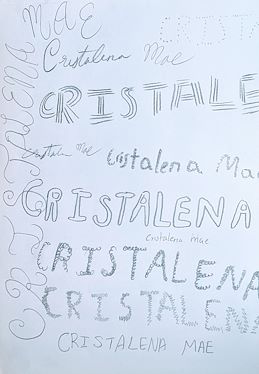 CRISTALENA MAE
CRISTA
Cristalena Mae
CRISTALE
Cristalena Mae
Cristalena Ma
CRISTALENA
Cristalena Mae
CRISTALENA
CRISTALENA
CRISTALENA MAE